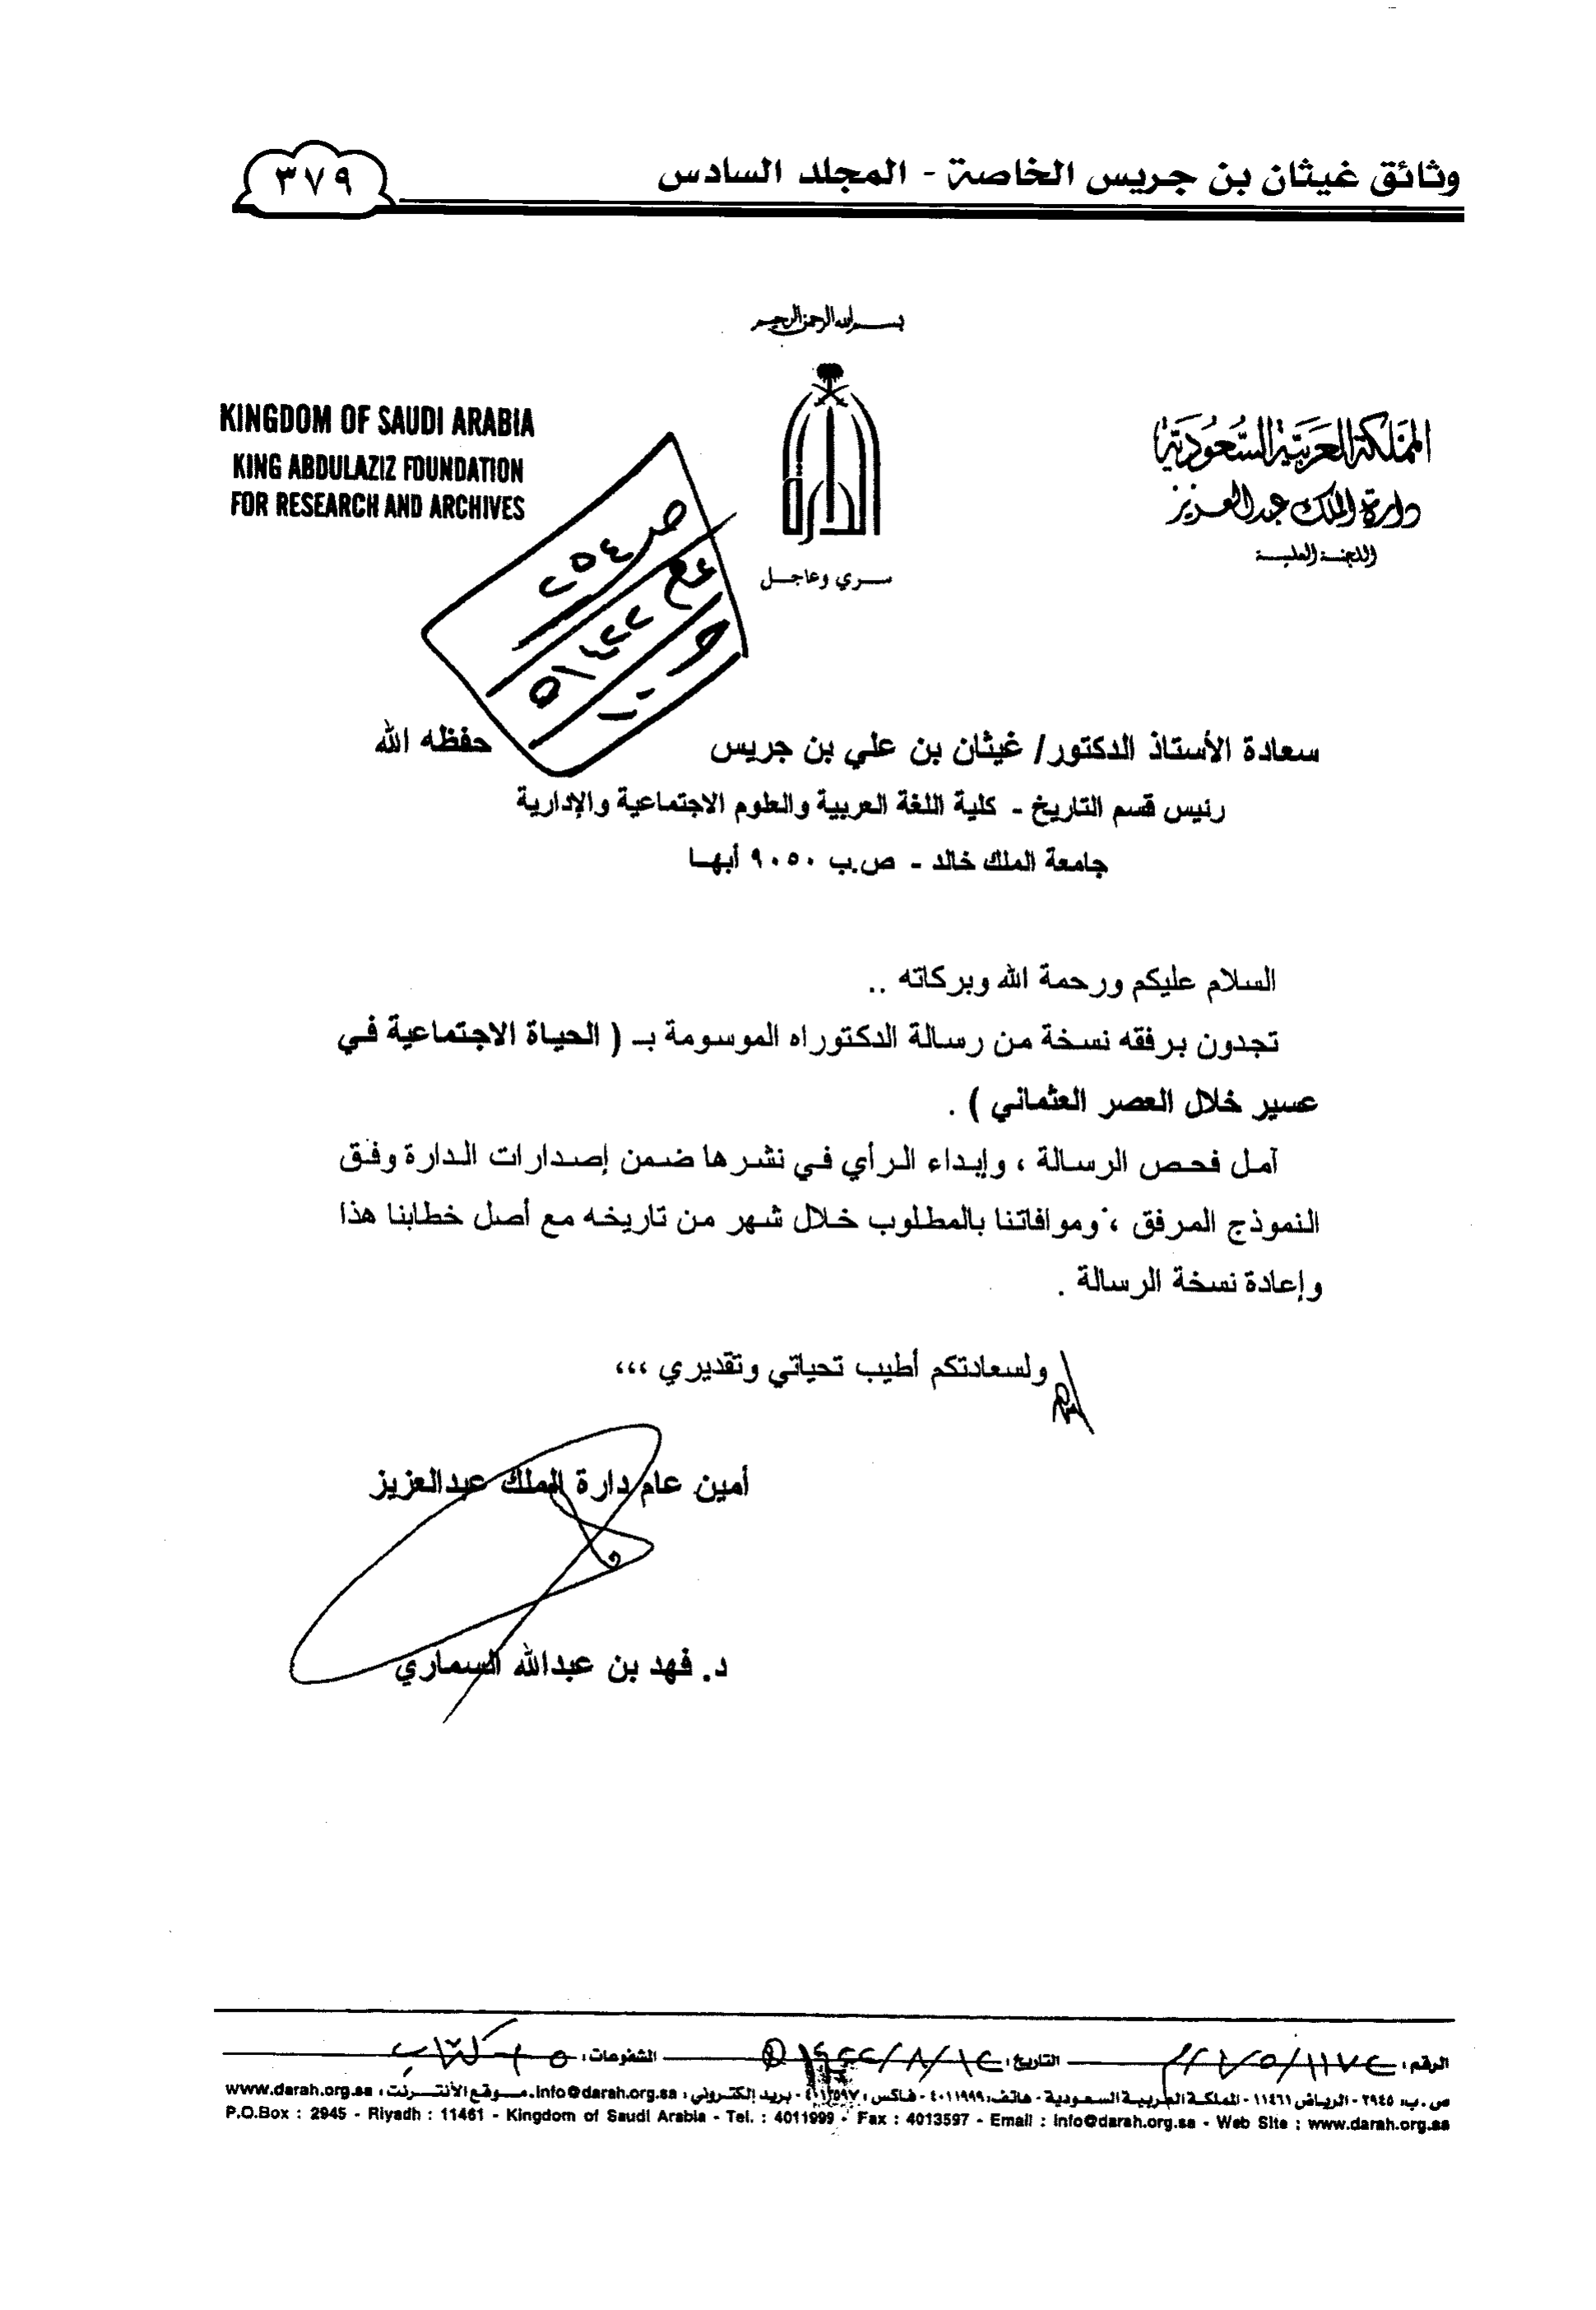 وثائق غيثان بن جريس الخاصة - المجلد السادس
٣٧٩
بسم الله الرحمن الرحيم
KINGDOM OF SAUDI ARABIA
KING ABDULAZIZ FOUNDATION
FOR RESEARCH AND ARCHIVES
المملكة العربية السعودية
دارة الملك عبدالعزيز
اللجنة العلمية
الدارة
سري وعاجل
سعادة الأستاذ الدكتور/ غيثان بن علي بن جريس حفظه الله
رئيس قسم التاريخ - كلية اللغة العربية والعلوم الاجتماعية والإدارية
جامعة الملك خالد - ص.ب ٩٠٥٠ أبها
السلام عليكم ورحمة الله وبركاته ..
تجدون برفقه نسخة من رسالة الدكتوراه الموسومة بـ ( الحياة الاجتماعية في
عسير خلال العصر العثماني ) .
آمل فحص الرسالة ، وإبداء الرأي في نشرها ضمن إصدارات الدارة وفق
النموذج المرفق ، وموافاتنا بالمطلوب خلال شهر من تاريخه مع أصل خطابنا هذا
وإعادة نسخة الرسالة .
ولسعادتكم أطيب تحياتي وتقديري ،،،
أمين عام دارة الملك عبدالعزيز
د. فهد بن عبدالله السماري
الرقم : التاريخ : ١٤٢٢/٨/١٤هـ المشفوعات :
ص . ب: ٢٩٤٥ - الرياض ١١٤٦١ - المملكة العربية السعودية - هاتف: ٤٠١١٩٩٩ - فاكس : ٤٠١٣٥٩٧ - بريد إلكتروني : info@darah.org.sa. موقع الأنترنت : www.darah.org.sa
P.O.Box : 2945 - Riyadh : 11461 - Kingdom of Saudi Arabia - Tel. : 4011999 - Fax : 4013597 - Email : info@darah.org.sa - Web Site : www.darah.org.sa